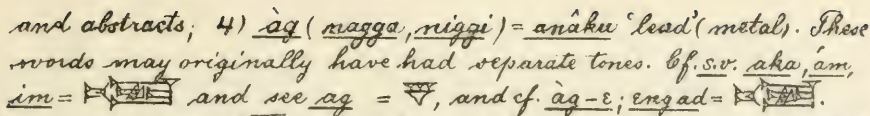 and abstracts; 4) àg (nagga, niggi) = anâku 'lead' (metal). These
words may originally have had separate tones. Cf. s.v. aka, ám,
im = and see ag = , and cf. àg-ε; engad= .